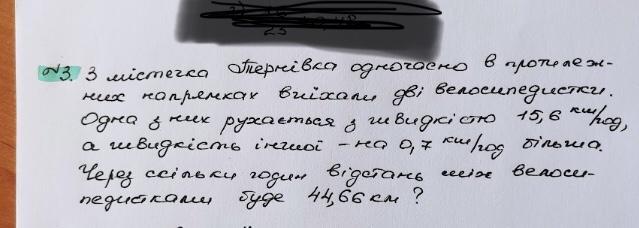 №3. З містечка Тернівка одночасно в протилеж-
них напрямках виїхали дві велосипедистки.
Одна з них рухається з швидкістю 15,6 км/год,
а швидкість іншої – на 0,7 км/год більша.
Через скільки годин відстань між велоси-
педистками буде 44,66 км?